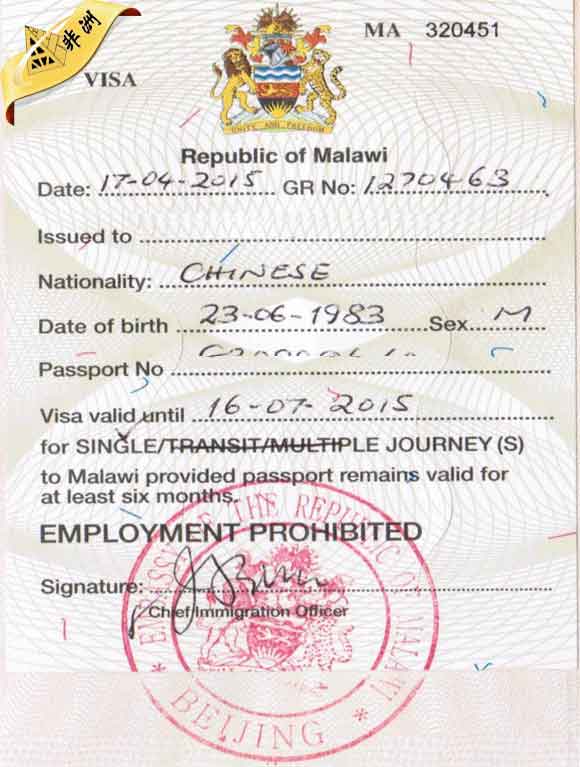 非洲
MA 320451
VISA
UNITY AND FREEDOM
Republic of Malawi
Date: 17-04-2015 GR No: 1270463
Issued to
Nationality: CHINESE
Date of birth 23-06-1983 Sex M
Passport No
Visa valid until 16-07-2015
for SINGLE/TRANSIT/MULTIPLE JOURNEY (S)
to Malawi provided passport remains valid for
at least six months.
EMPLOYMENT PROHIBITED
Signature:
Chief Immigration Officer
EMBASSY OF THE REPUBLIC OF MALAWI
* BEIJING *